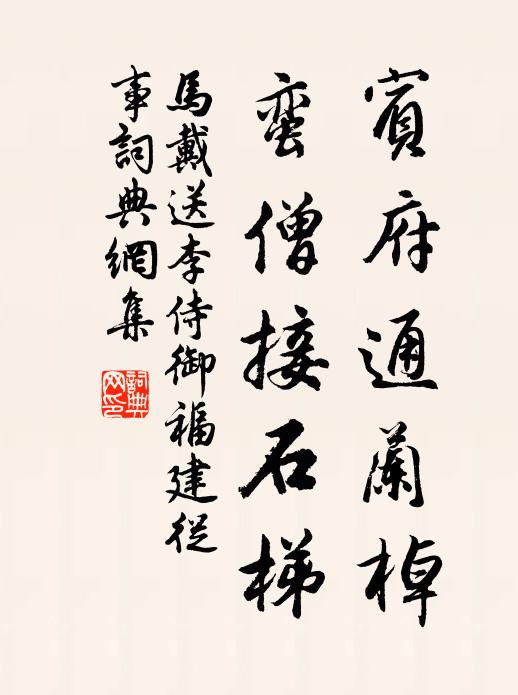 賓府通蘭棹
蛮僧接石梯
馬戴送李侍御福建從
事詞典網集
詞典网印